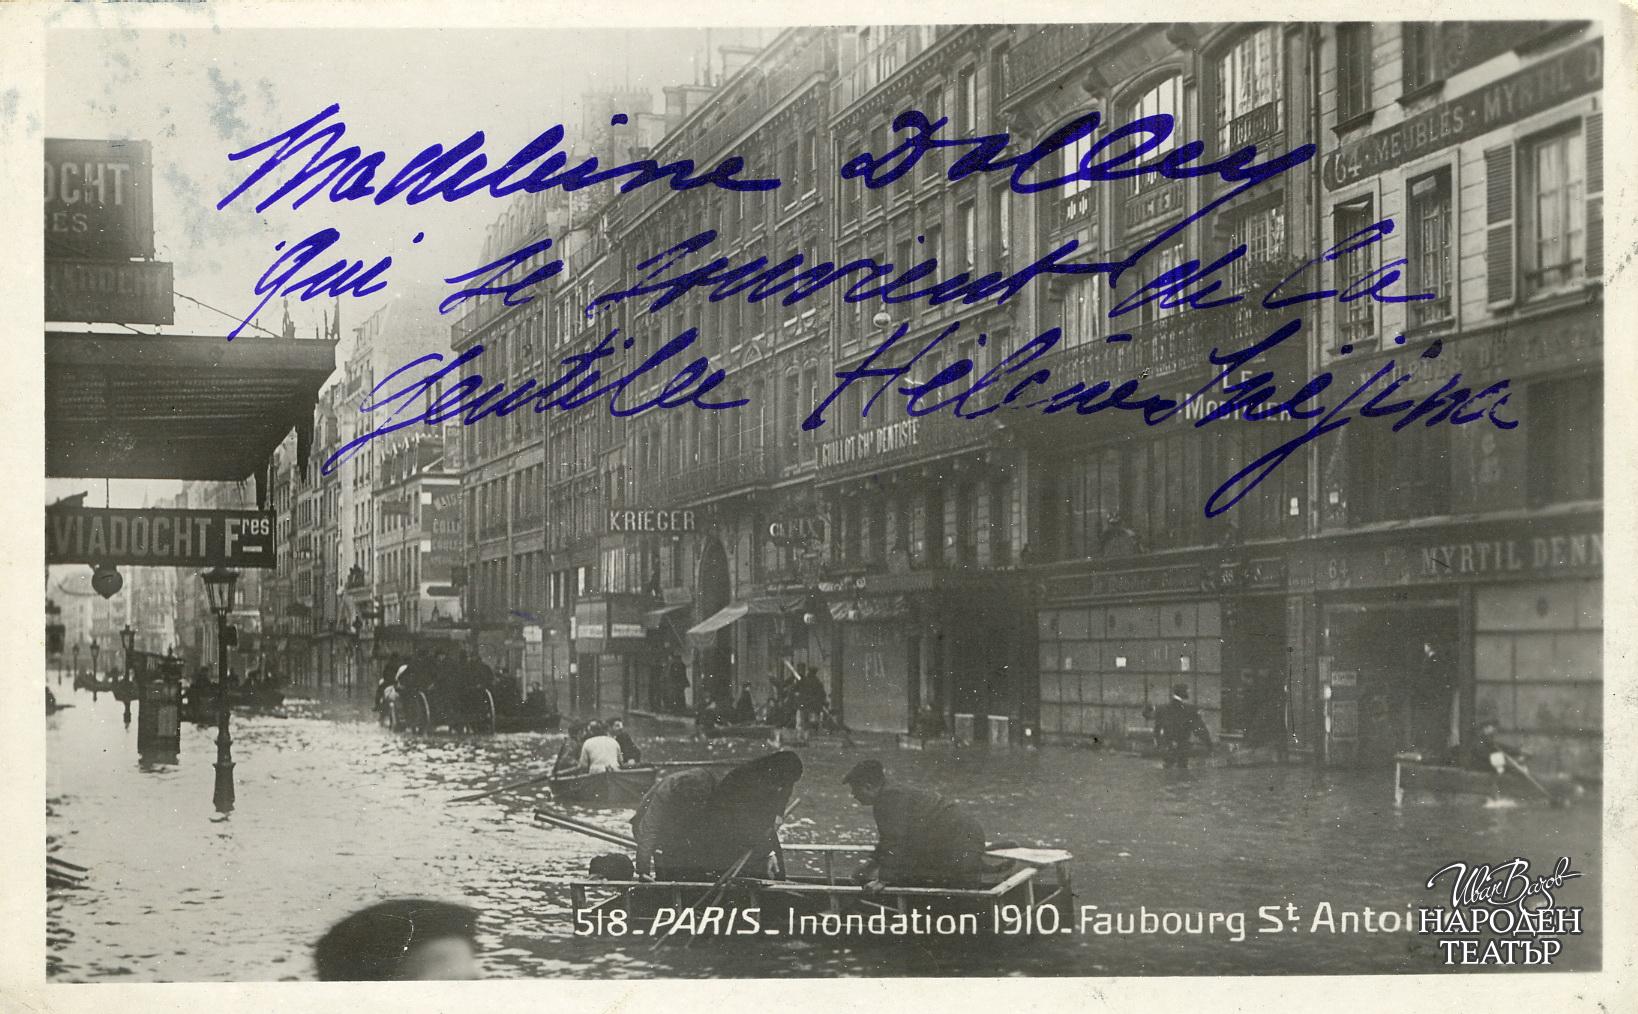 Madeleine Dolley
qui se souvient de la
gentille Hélène Snejina
OCHT
VIADOCHT Fres
KRIEGER
GUILLOT CHn DENTISTE
LE
64 · MEUBLES · MYRTIL
64
MYRTIL DENN
518_PARIS_Inondation 1910_Faubourg St. Antoi
Иван Вазов
НАРОДЕН
ТЕАТЪР